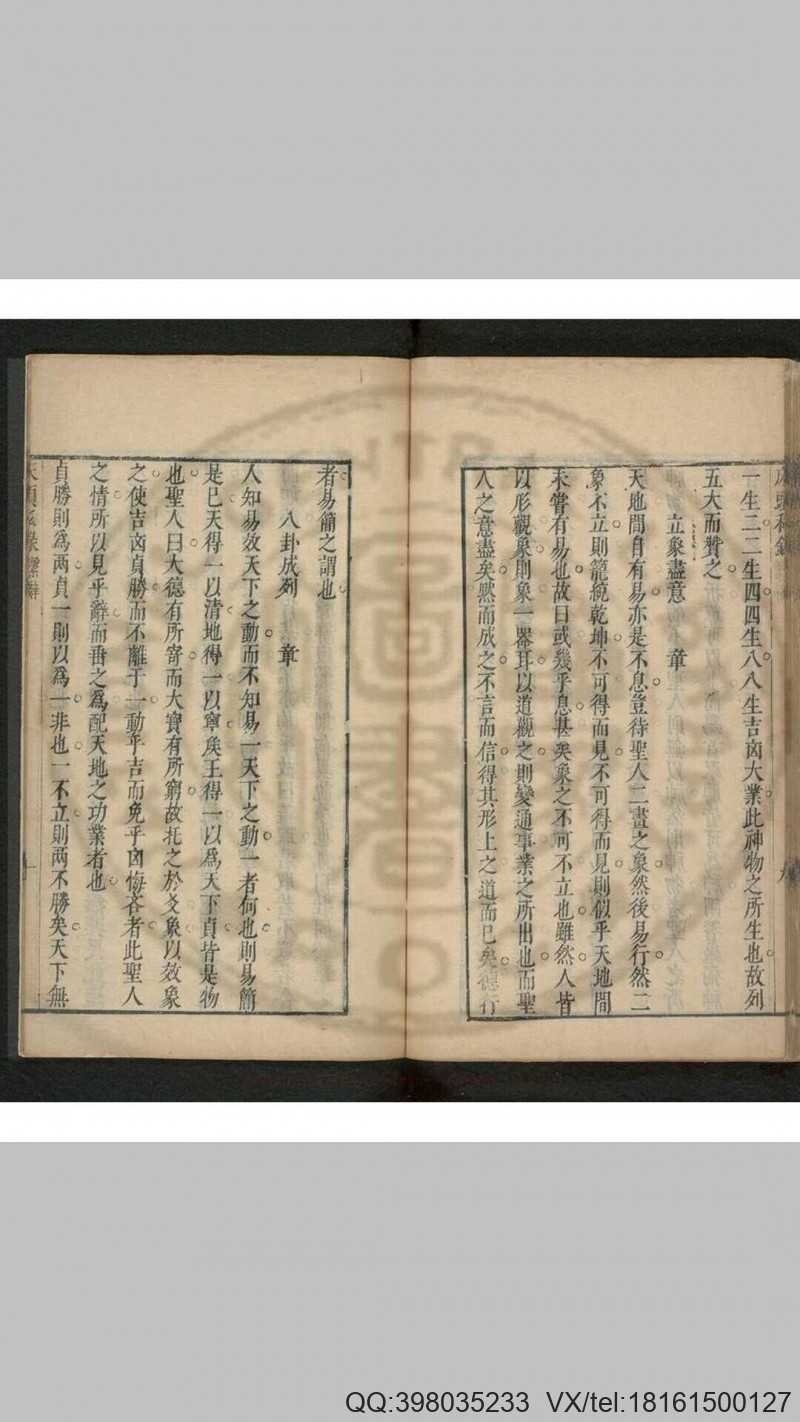 一生二二生四四生八八生吉凶大業此神物之所生也故列
五大而贊之
立象盡意　　章
天地間自有易亦是不息豈待聖人二畫之象然後易行然二
象不立則籠統乾坤不可得而見不可得而見則似乎天地間
未嘗有易也故曰或幾乎息甚矣象之不可不立也雖然人皆
以形觀象則象一器耳以道觀之則變通事業之所出也而聖
人之意盡矣默而成之不言而信得其形上之道而已矣德行
者易簡之謂也
八卦成列　　章
人知易效天下之動而不知易一天下之動一者何也則易簡
是已天得一以清地得一以寧矦王得一以爲天下貞皆是物
也聖人曰大德有所寄而大寶有所窮故托之於爻象以效象
之使吉凶貞勝而不離于一動乎吉而免乎凶悔吝者此聖人
之情所以見乎辭而番之爲配天地之功業者也
貞勝則爲两貞一則以爲一非也一不立則两不勝矣天下無
QQ:398035233 VX/tel:18161500127